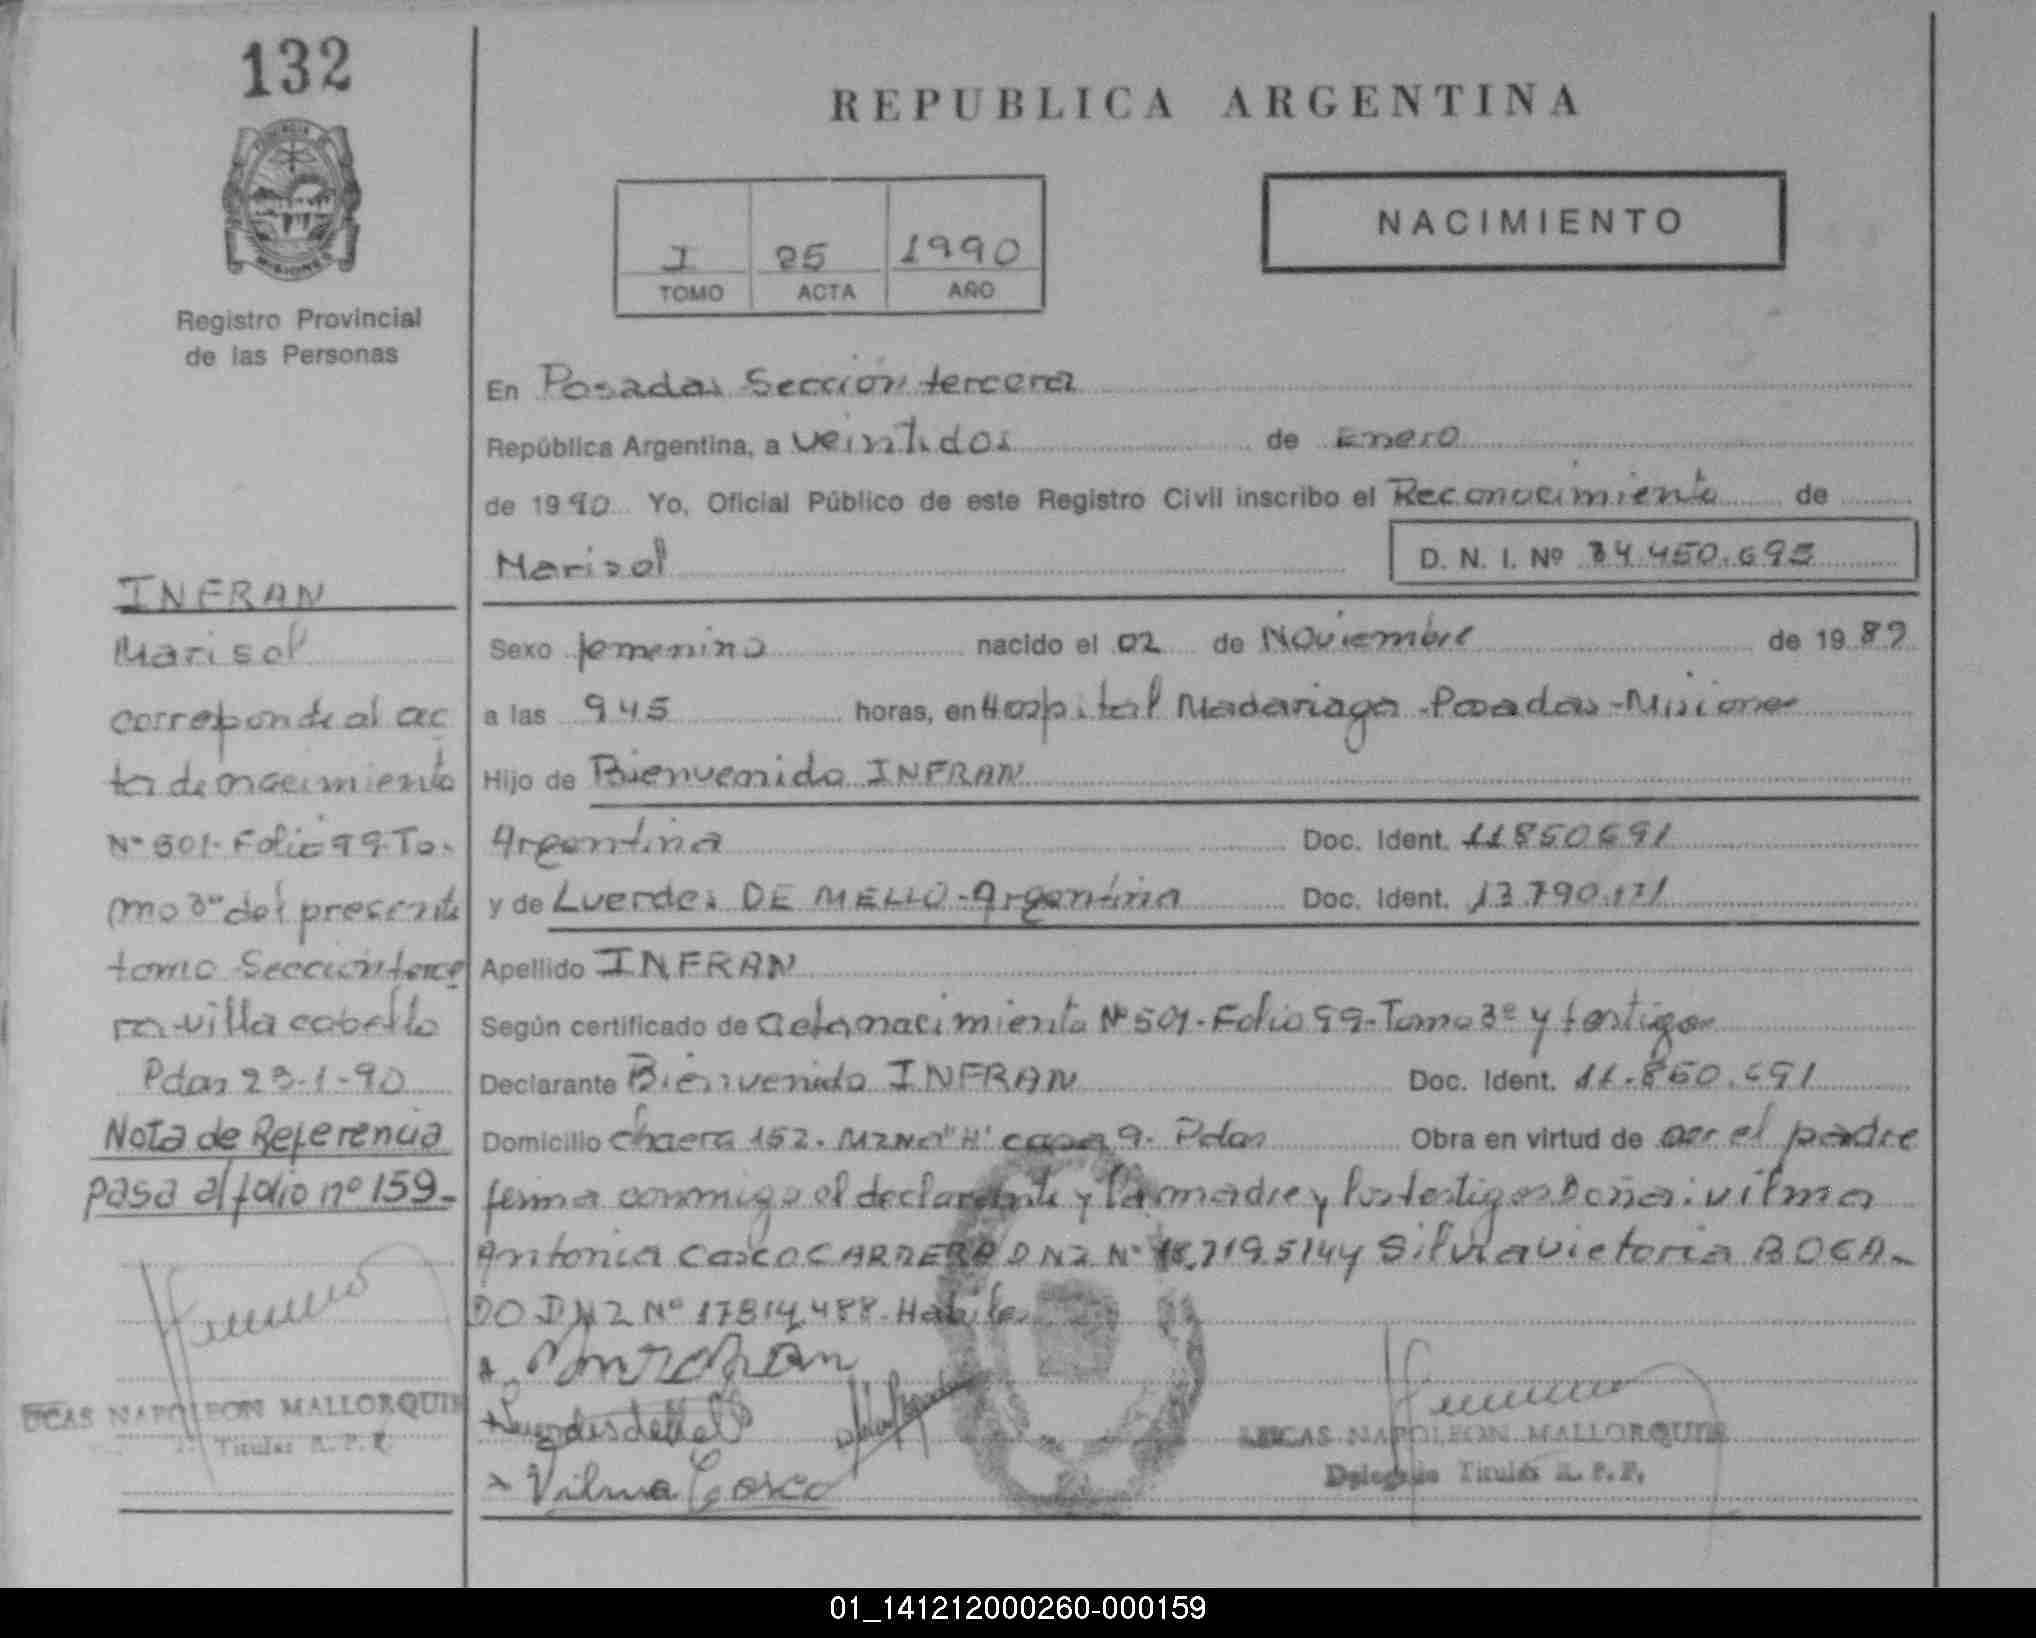 132
Registro Provincial
de las Personas
INFRAN
Marisol
corresponde al ac
ta de nacimiento
Nº 501-Folio 99-To-
mo 3º del presente
tomo Sección terce
ra-villa cabello
Pdas 23-1-90
Nota de Referencia
pasa al folio nº 159-
LUCAS NAPOLEON MALLORQUIN
Titular R. P. P.
REPUBLICA ARGENTINA
I 25 1990
TOMO ACTA AÑO
NACIMIENTO
En Posadas Sección tercera
República Argentina, a veintidos de Enero
de 1990 Yo, Oficial Público de este Registro Civil inscribo el Reconocimiento de
Marisol D. N. I. Nº 34.450.695
Sexo femenino nacido el 02 de Noviembre de 1989
a las 945 horas, en Hospital Madariaga-Posadas-Misiones
Hijo de Bienvenido INFRAN
Argentina Doc. Ident. 11850691
y de Luerdes DE MELLO-Argentina Doc. Ident. 13.790.171
Apellido INFRAN
Según certificado de acta nacimiento Nº 501-Folio 99-Tomo 3º y testigos
Declarante Bienvenido INFRAN Doc. Ident. 11.850.691
Domicilio chacra 152. MZNA "H" casa 9. Pdas Obra en virtud de ser el padre
firma conmigo el declarante y la madre y los testigos Doña: vilma
Antonia Casco CARRERA DNI Nº 18.719.514 y Silvia victoria BOGA-
DO DNI Nº 17814488. Habiles
Lourdes de Mello
Vilma Casco
LUCAS NAPOLEON MALLORQUIN
Delegado Titular R. P. P.
01_141212000260-000159